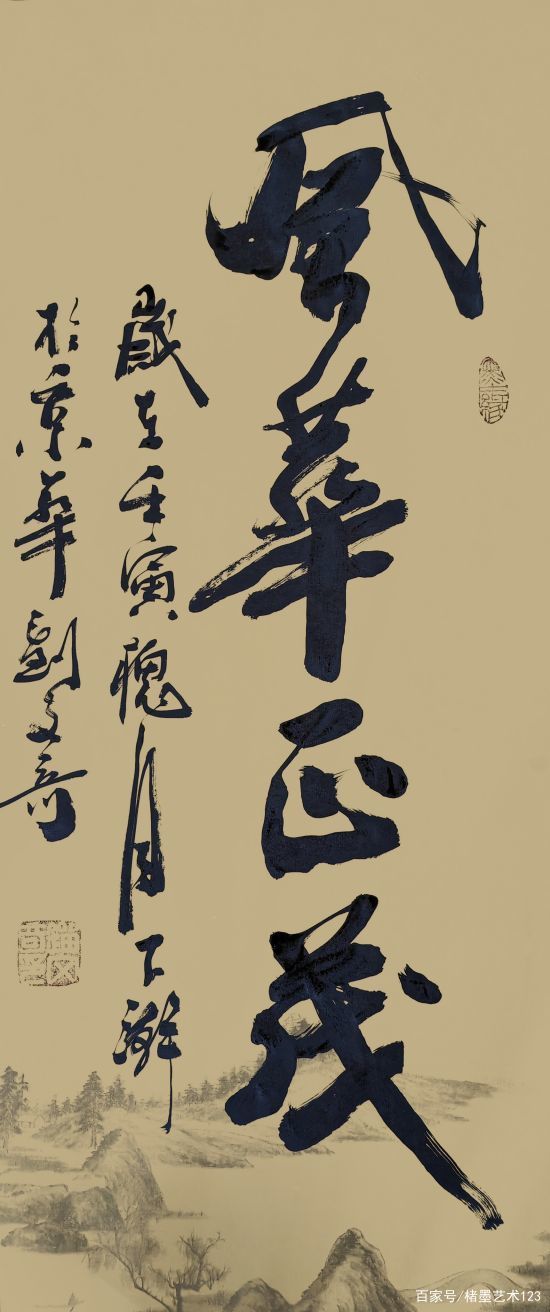 風華正茂
歲在壬寅槐月下澣
於京華劉文
百家号/楮墨艺术123